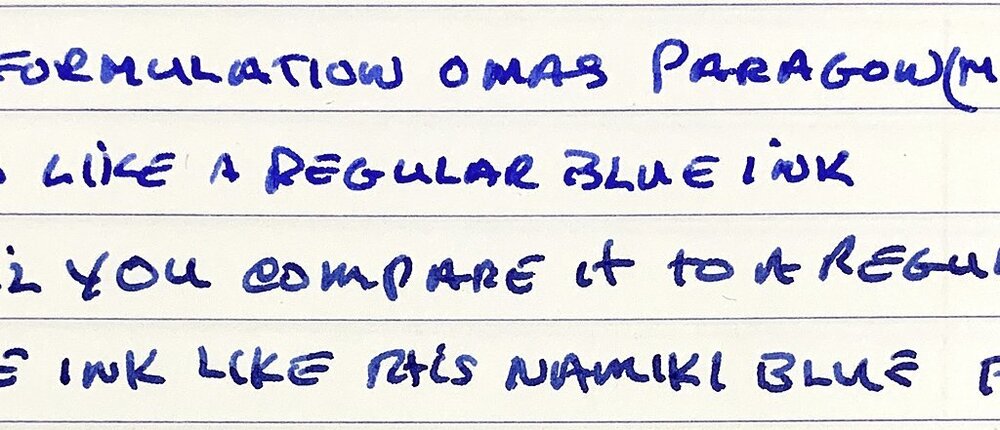 FORMULATION OMAS PARAGON (M
LIKE A REGULAR BLUE INK
YOU COMPARE it to A REGUL
E INK LIKE THIS NAMIKI BLUE